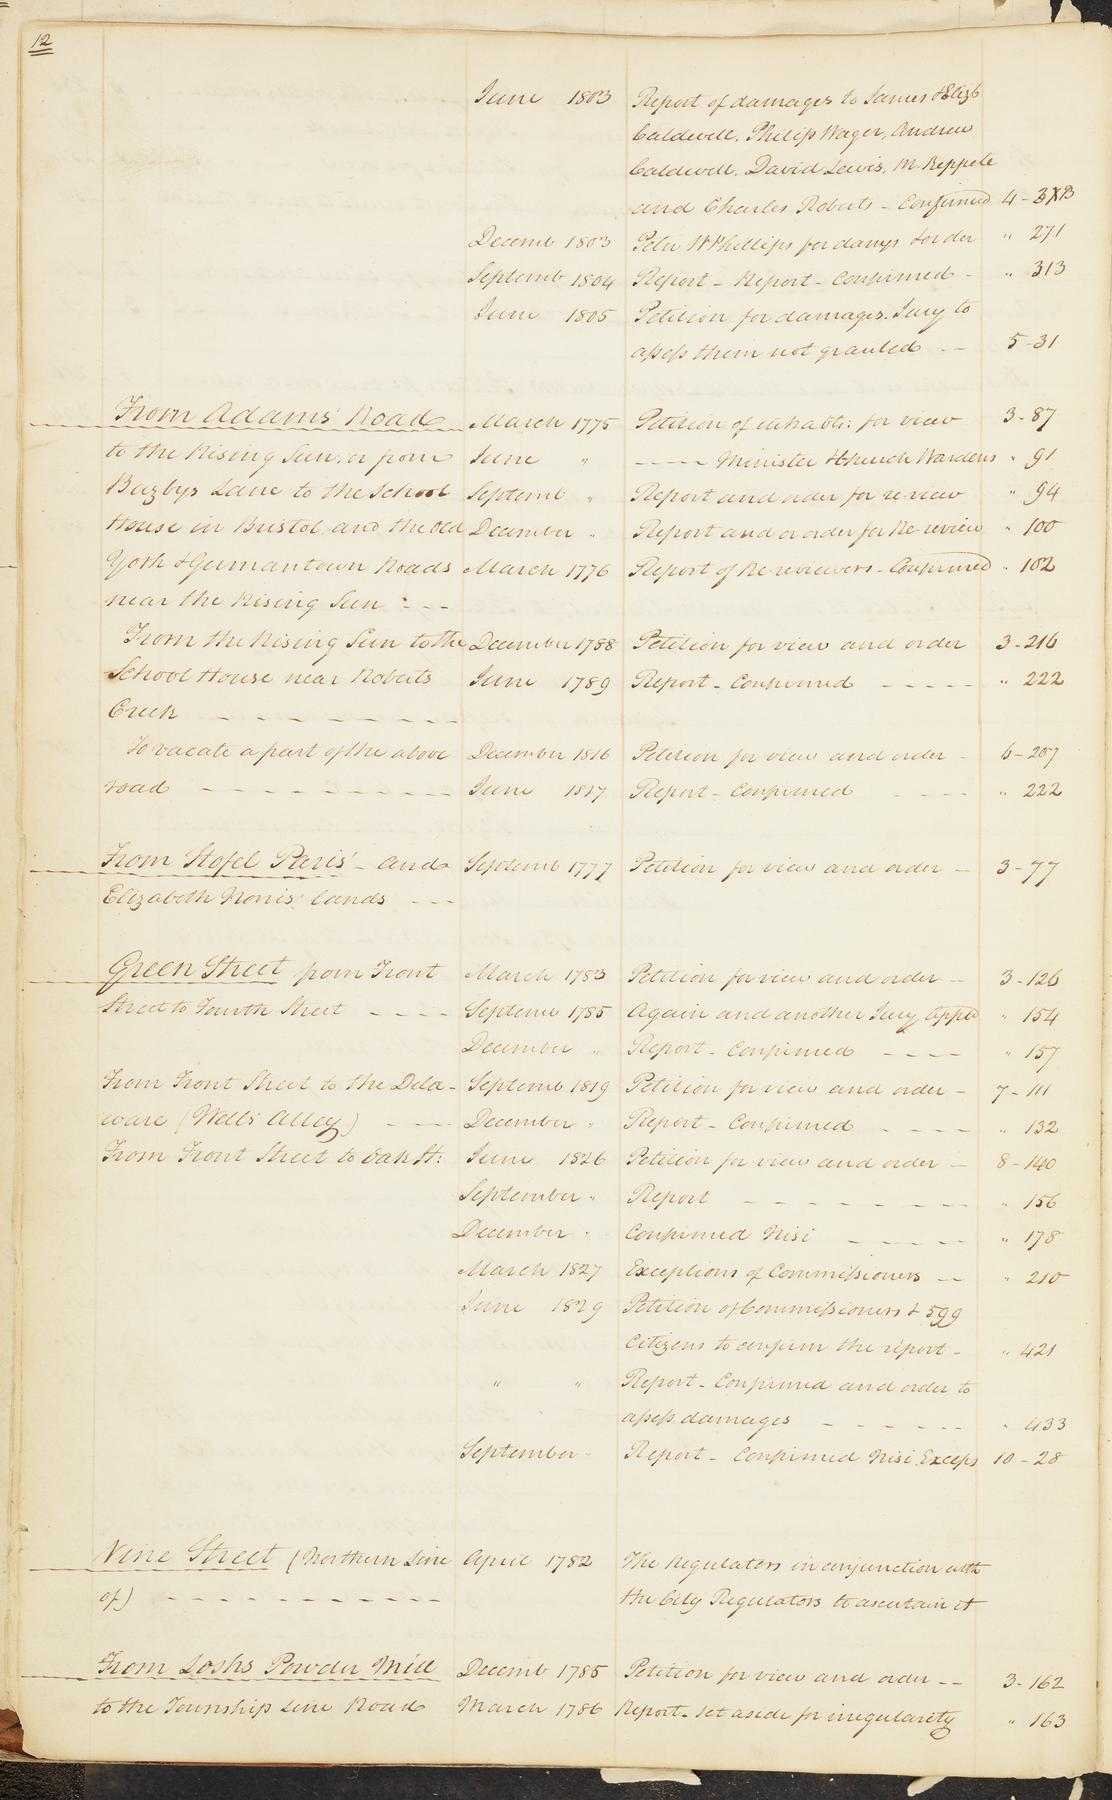 12
June 1803 Report of damages to James & Elizb
Caldwell, Philip Wager, Andrew
Caldwell, David Lewis, M. Keppele
and Charles Roberts - Confirmed 4 -
Decemb 1803 Peter W Phillips for damgs & order " 271
Septemb 1804 Report - Report - Confirmed - " 313
June 1805 Petition for damages. Jury to
assess them not granted - - 5-31
From Adams' Road March 1775 Petition of inhabts: for view 3-87
to the Rising Sun, or from June " ---- Minister & Church Wardens " 91
Buzbys Lane to the School Septemb " Report and order for re-view " 94
House in Bristol and the old December " Report and order for Re-review " 100
York & Germantown Roads March 1776 Report of Re-reviewers - Confirmed " 102
near the Rising Sun - - -
From the Rising Sun to the December 1788 Petition for view and order 3-216
School House near Roberts June 1789 Report - Confirmed - - - - - " 222
Creek - - - - - - - -
To vacate a part of the above December 1816 Petition for view and order - 6-207
road - - - - - - - - - - June 1817 Report - Confirmed - - - - " 222
From Stofel Paris' - and Septemb 1777 Petition for view and order - 3-77
Elizabeth Norris' lands - - -
Green Street from Front March 1783 Petition for view and order - - 3-126
Street to Fourth Street - - - - Septem 1785 Again and another Jury appd " 154
December " Report - Confirmed - - - - " 157
From Front Street to the Dela- Septemb 1819 Petition for view and order - 7-111
ware (Wells' Alley) - - - December " Report - Confirmed - - - - " 132
From Front Street to Oak St: June 1826 Petition for view and order - 8-140
September " Report - - - - - - - - " 156
December " Confirmed Nisi - - - - " 178
March 1827 Exceptions of Commissioners - - " 210
June 1829 Petition of Commissioners & 599
Citizens to confirm the report - " 421
" " Report - Confirmed and order to
assess damages - - - - - " 433
September - Report - Confirmed Nisi. Exceps 10-28
Vine Street (Northern Line April 1782 The Regulators in conjunction with
of) - - - - - - - - - - - the City Regulators to ascertain it
From Loshs Powder Mill Decemb 1785 Petition for view and order - - 3-162
to the Township Line Road March 1786 Report - set aside for irregularity " 163